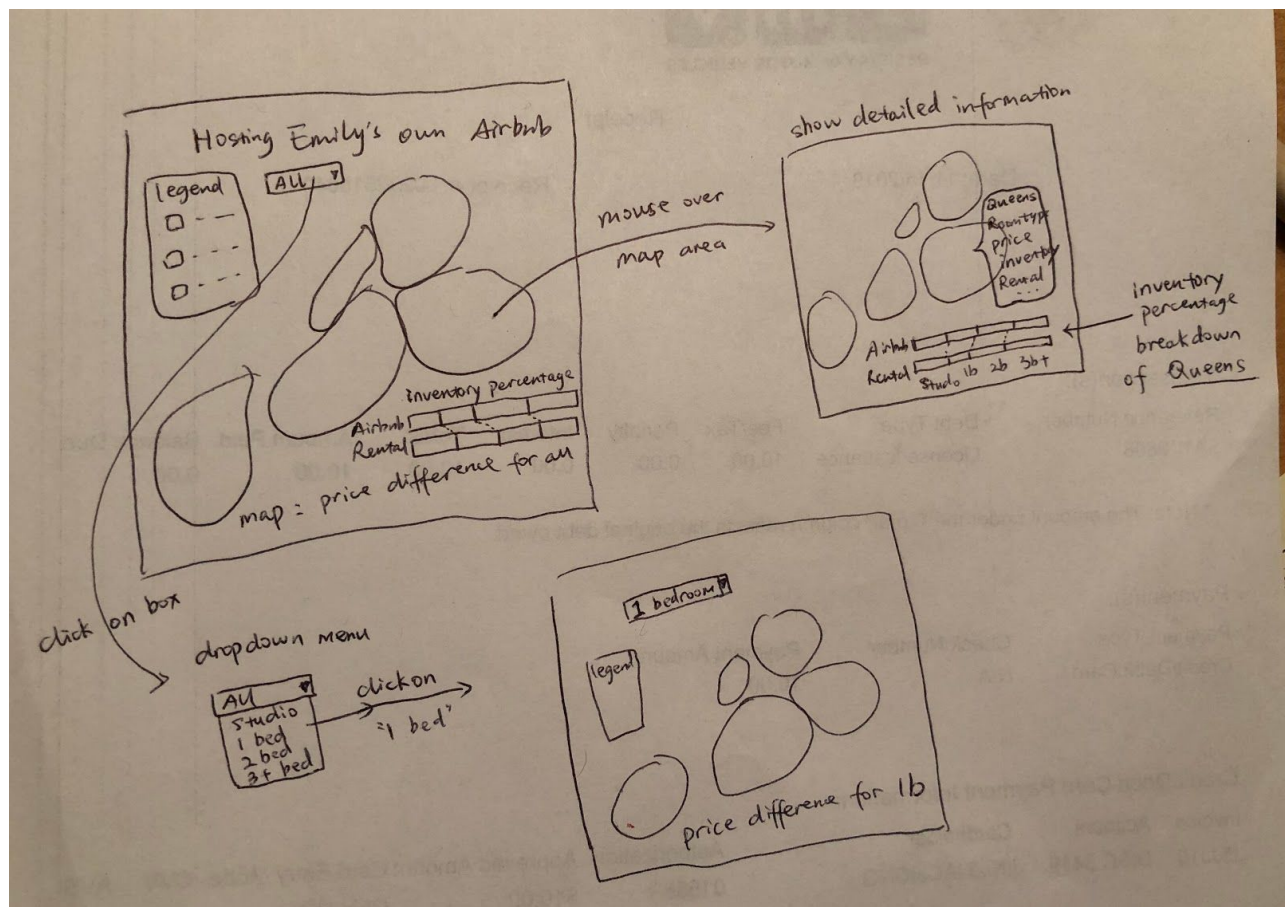 Hosting Emily's own Airbnb
legend
All
inventory percentage
Airbnb
Rental
map = price difference for all
mouse over
map area
show detailed information
Queens
Room type
price
inventory
Rental
...
Airbnb
Rental
Studio 1b 2b 3b+
inventory
percentage
breakdown
of Queens
click on box
dropdown menu
All
Studio
1 bed
2 bed
3+ bed
click on
"1 bed"
1 bedroom
legend
price difference for 1b